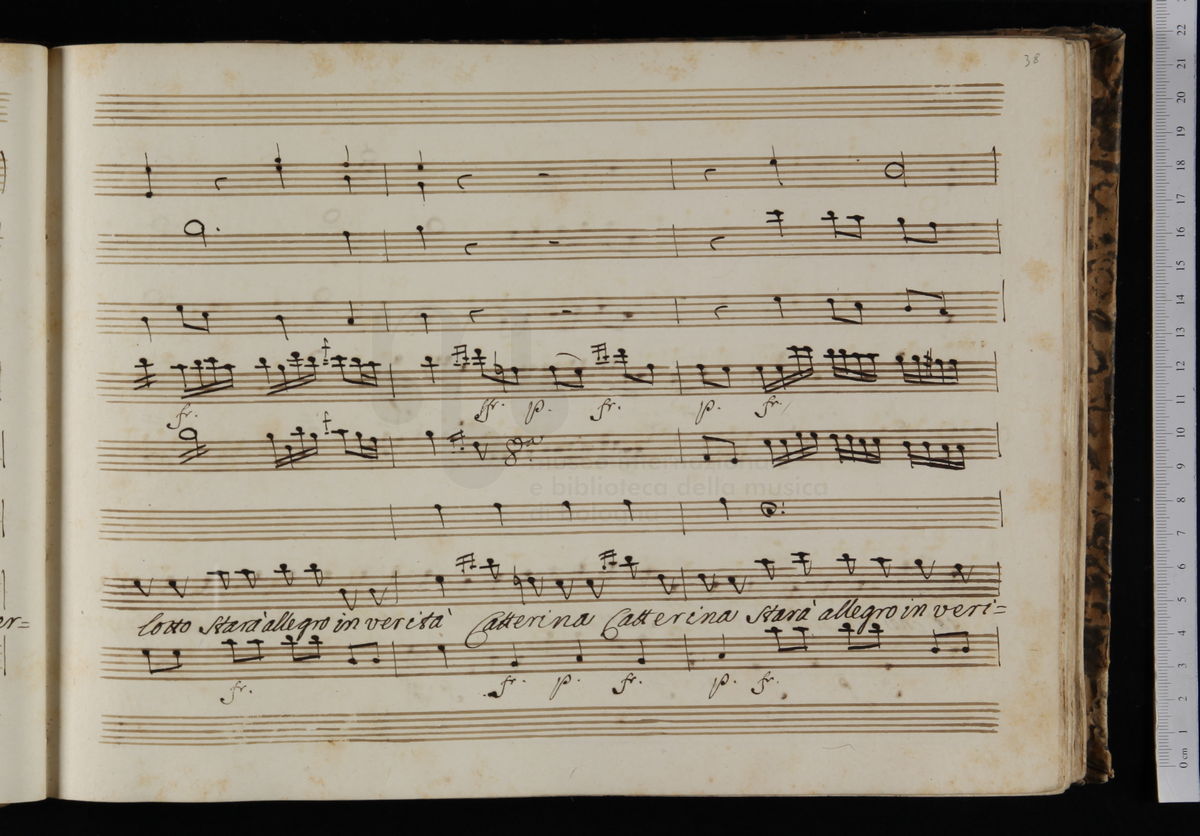 38
fr. ffr. p. fr. p. fr.
8.a
e biblioteca della musica
er=
lotto Starà allegro in verità Catterina Catterina Starà allegro in veri=
fr. fr. p. fr. p. fr.
0 cm 1 2 3 4 5 6 7 8 9 10 11 12 13 14 15 16 17 18 19 20 21 22